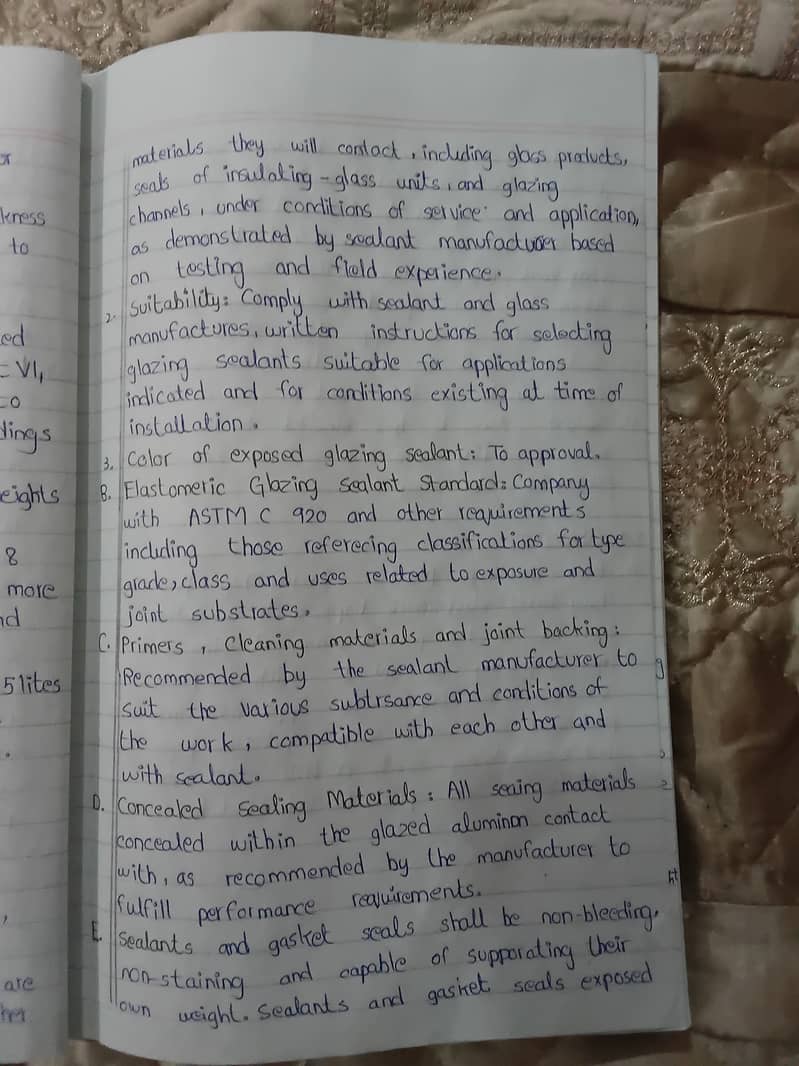 or
kness
to
ed
= VI,
dings
eights
8
more
nd
5 lites
are
materials they will contact, including glass products,
seals of insulaling-glass units, and glazing
channels, under conditions of service and application,
as demonstrated by sealant manufactuer based
on testing and field experience.
2. Suitability: Comply with sealant and glass
manufactures, written instructions for selecting
glazing sealants suitable for applications
indicated and for conditions existing at time of
installation.
3. Color of exposed glazing sealant: To approval.
B. Elastomeric Glazing Sealant Standard: Company
with ASTM C 920 and other requirements
including those referecing classifications for type
grade, class and uses related to exposure and
joint substrates.
C. Primers, Cleaning materials and joint backing:
Recommended by the sealant manufacturer to
suit the various subtrsance and conditions of
the work, compatible with each other and
with sealant.
D. Concealed Sealing Materials: All seaing materials
concealed within the glazed aluminon contact
with, as recommended by the manufacturer to
fulfill performance requirements.
E. Sealants and gasket seals shall be non-bleeding,
non-staining and capable of supporating their
own weight. Sealants and gasket seals exposed